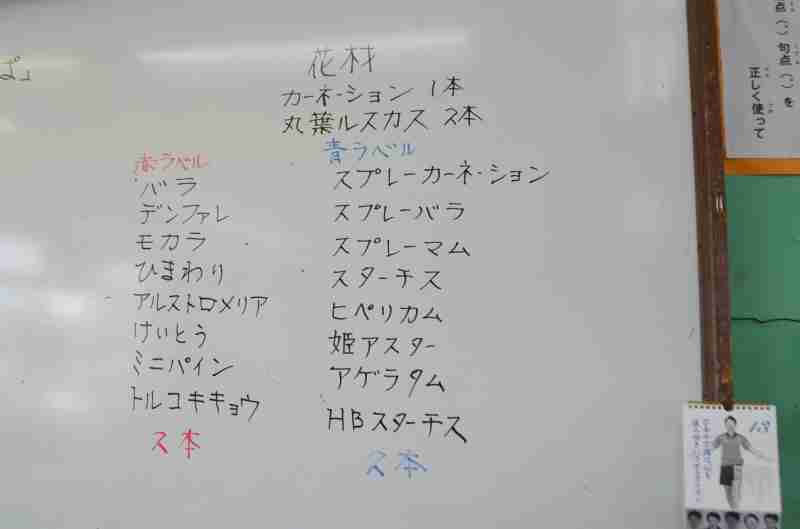 ぱ」
花材
カーネーション 1本
丸葉ルスカス 2本
赤ラベル
バラ
デンファレ
モカラ
ひまわり
アルストロメリア
けいとう
ミニパイン
トルコキキョウ
2本
青ラベル
スプレーカーネーション
スプレーバラ
スプレーマム
スターチス
ヒペリカム
姫アスター
アゲラタム
HBスターチス
2本
点(、)句点(。)を
正しく使って